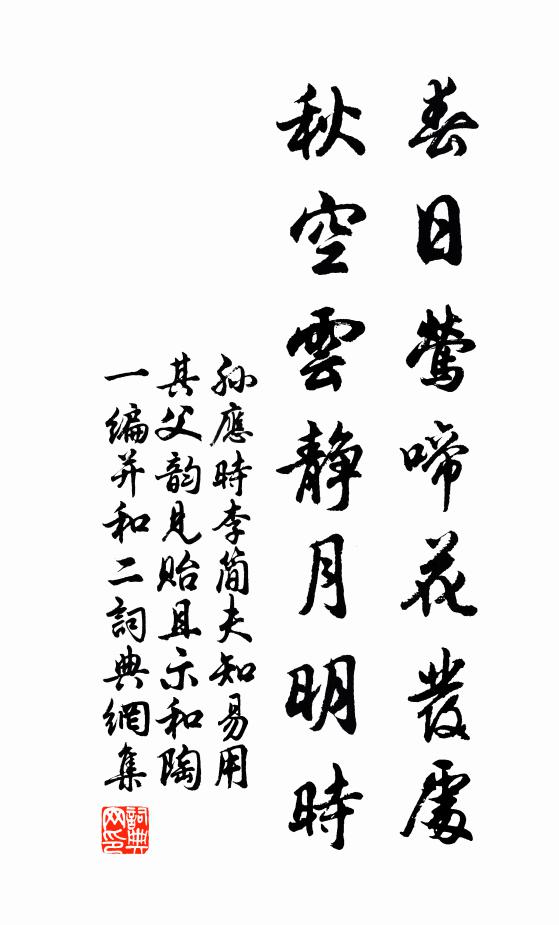 春日鶯啼花發處
秋空雲静月明時
孙應時李簡夫知易用
其父韵見貽且示和陶
一编并和二詞典網集
詞典网印